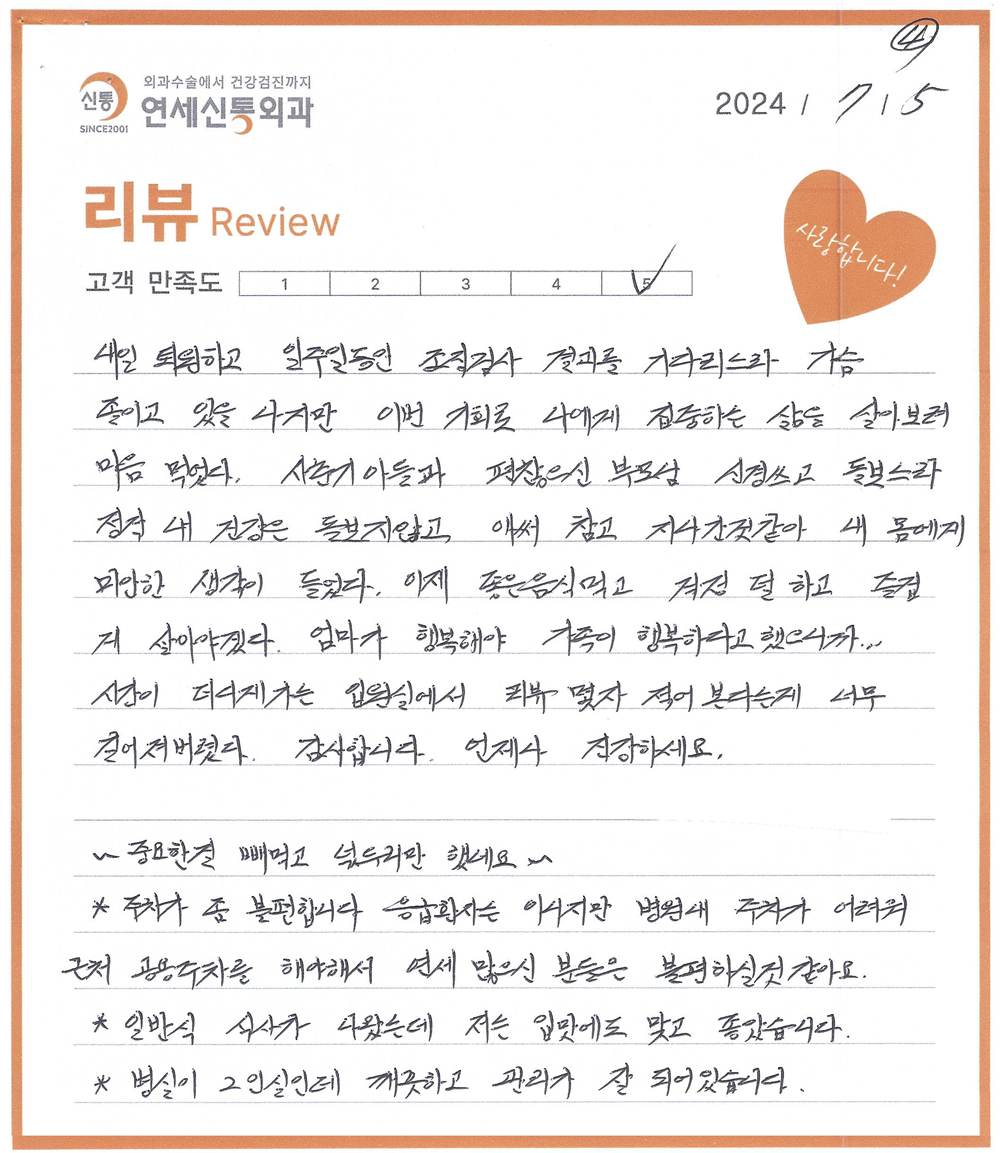 ④
신통
SINCE2001
외과수술에서 건강검진까지
연세신통외과
2024 / 7 / 5
리뷰 Review
사랑합니다!
고객 만족도 1 2 3 4 5
내일 퇴원하고 일주일동안 조직검사 결과를 기다리느라 가슴
졸이고 있을 나지만 이번 기회로 나에게 집중하는 삶을 살아보려
마음 먹었다. 사춘기 아들과 편찮으신 부모님 신경쓰고 돌보느라
정작 내 건강은 돌보지않고, 애써 참고 지나간것같아 내 몸에게
미안한 생각이 들었다. 이제 좋은음식먹고 걱정 덜 하고 즐겁
게 살아야겠다. 엄마가 행복해야 가족이 행복하다고 했으니까...
시간이 더디게가는 입원실에서 리뷰 몇자 적어 본다는게 너무
길어져버렸다. 감사합니다. 언제나 건강하세요.
~ 중요한걸 빼먹고 넋두리만 했네요 ~
* 주차가 좀 불편합니다 응급환자는 아니지만 병원내 주차가 어려워
근처 공용주차를 해야해서 연세 많으신 분들은 불편하실것 같아요.
* 일반식 식사가 나왔는데 저는 입맛에도 맞고 좋았습니다.
* 병실이 2인실인데 깨끗하고 관리가 잘 되어있습니다.